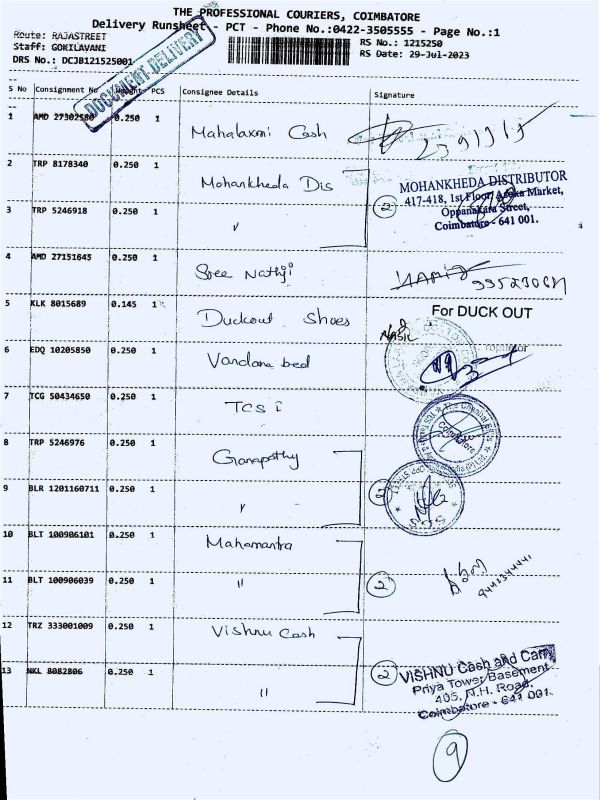 THE PROFESSIONAL COURIERS, COIMBATORE
Delivery Runsheet - PCT - Phone No.:0422-3505555 - Page No.:1
Route: RAJASTREET
Staff: GOKILAVANI
RS No.: 1215250
DRS No.: DCJB121525001
RS Date: 29-Jul-2023
DOCUMENT DELIVERY
S No Consignment No Weight PCS Consignee Details Signature
1 AMD 27302580 0.250 1 Mahalaxmi Cash
2 TRP 8178340 0.250 1 Mohankheda Dis
MOHANKHEDA DISTRIBUTOR
417-418, 1st Floor, Asoka Market,
Oppanakara Street,
Coimbatore - 641 001.
3 TRP 5246918 0.250 1 〃 2
4 AMD 27151645 0.250 1 Sree Nathji
5 KLK 8015689 0.145 1 Duckout Shoes
For DUCK OUT
6 EDQ 10205850 0.250 1 Vandana bed
7 TCG 50434650 0.250 1 TCS i
8 TRP 5246976 0.250 1 Ganapathy
9 BLR 1201160711 0.250 1 〃 2
10 BLT 100906101 0.250 1 Mahamantra
11 BLT 100906039 0.250 1 〃 2
12 TRZ 333001009 0.250 1 Vishnu Cash
13 NKL 8082806 0.250 1 〃 2
VISHNU Cash and Carry
Priya Tower Basement
405, N.H. Road,
Coimbatore - 641 001.
9